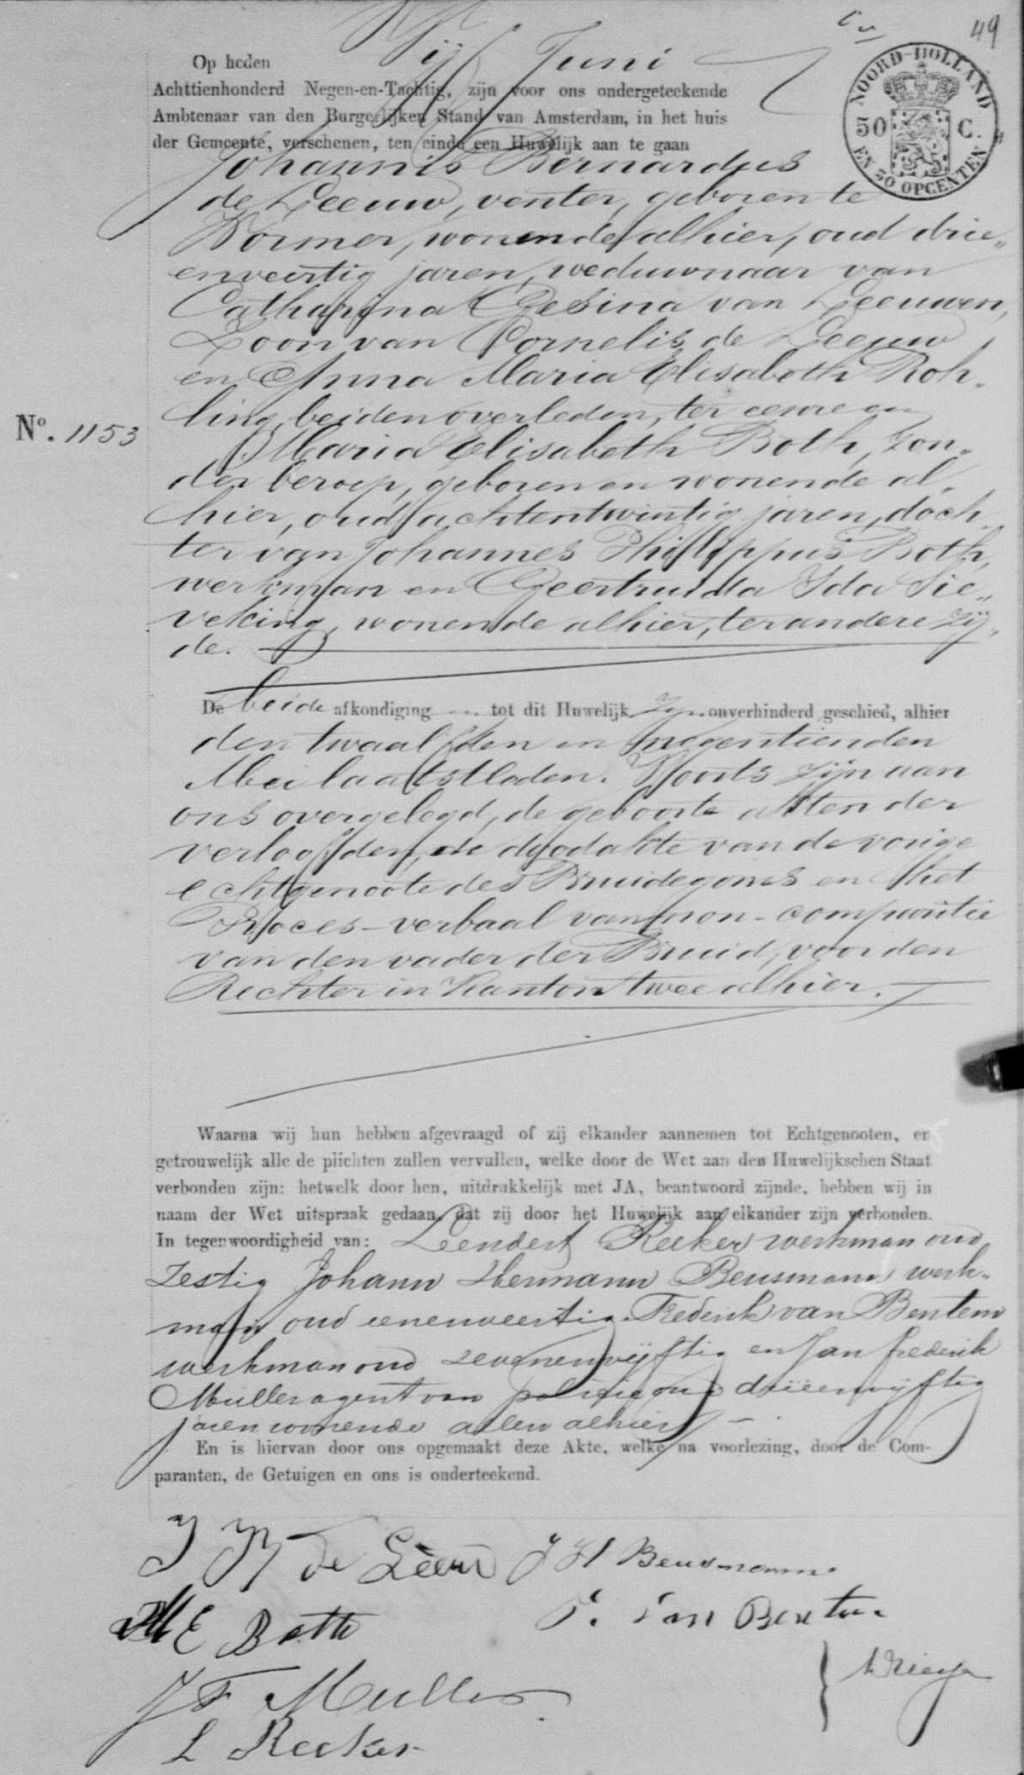 49
NOORD-HOLLAND
50 C.
EN 50 OPCENTEN
Op heden Vijf Juni
Achttienhonderd Negen-en-Tachtig, zijn voor ons ondergeteekende
Ambtenaar van den Burgerlijken Stand van Amsterdam, in het huis
der Gemeente, verschenen, ten einde een Huwelijk aan te gaan
Johannis Bernardus
de Leeuw, venter, geboren te
Wormer, wonende alhier, oud drie„
enveertig jaren, weduwnaar van
Catharina Gesina van Leeuwen,
Zoon van Cornelis de Leeuw
en Anna Maria Elisabeth Roh„
ling, beiden overleden, ter eenre en
Nº. 1153
Maria Elisabeth Both, zon„
der beroep, geboren en wonende al„
hier, oud achtentwintig jaren, doch„
ter van Johannes Philippus Both,
werkman en Geertruida Ida Sie„
veking, wonende alhier, ter andere zij„
de.
De beide afkondiging tot dit Huwelijk zijn onverhinderd geschied, alhier
den twaalfden en negentienden
Mei laatstleden. Voorts zijn aan
ons overgelegd, de geboorte akten der
verloofden, de doodakte van de vorige
echtgenoote des Bruidegoms en het
Proces-verbaal van non-comparitie
van den vader der Bruid, voor den
Rechter in Kanton twee alhier.
Waarna wij hun hebben afgevraagd of zij elkander aannemen tot Echtgenooten, en
getrouwelijk alle de plichten zullen vervullen, welke door de Wet aan den Huwelijkschen Staat
verbonden zijn: hetwelk door hen, uitdrukkelijk met JA, beantwoord zijnde, hebben wij in
naam der Wet uitspraak gedaan, dat zij door het Huwelijk aan elkander zijn verbonden.
In tegenwoordigheid van: Leendert Reeker werkman oud
zestig Johann Hermann Beusmann werk„
man oud eenenveertig Frederik van Bentem
werkman oud zevenenvijftig en Jan Frederik
Muller agent van politie oud drieenvijftig
jaren wonende allen alhier
En is hiervan door ons opgemaakt deze Akte, welke na voorlezing, door de Com-
paranten, de Getuigen en ons is onderteekend.
J B de Leeuw J H Beusmann.
M E Both F. van Bentem
J F Muller
L Reeker